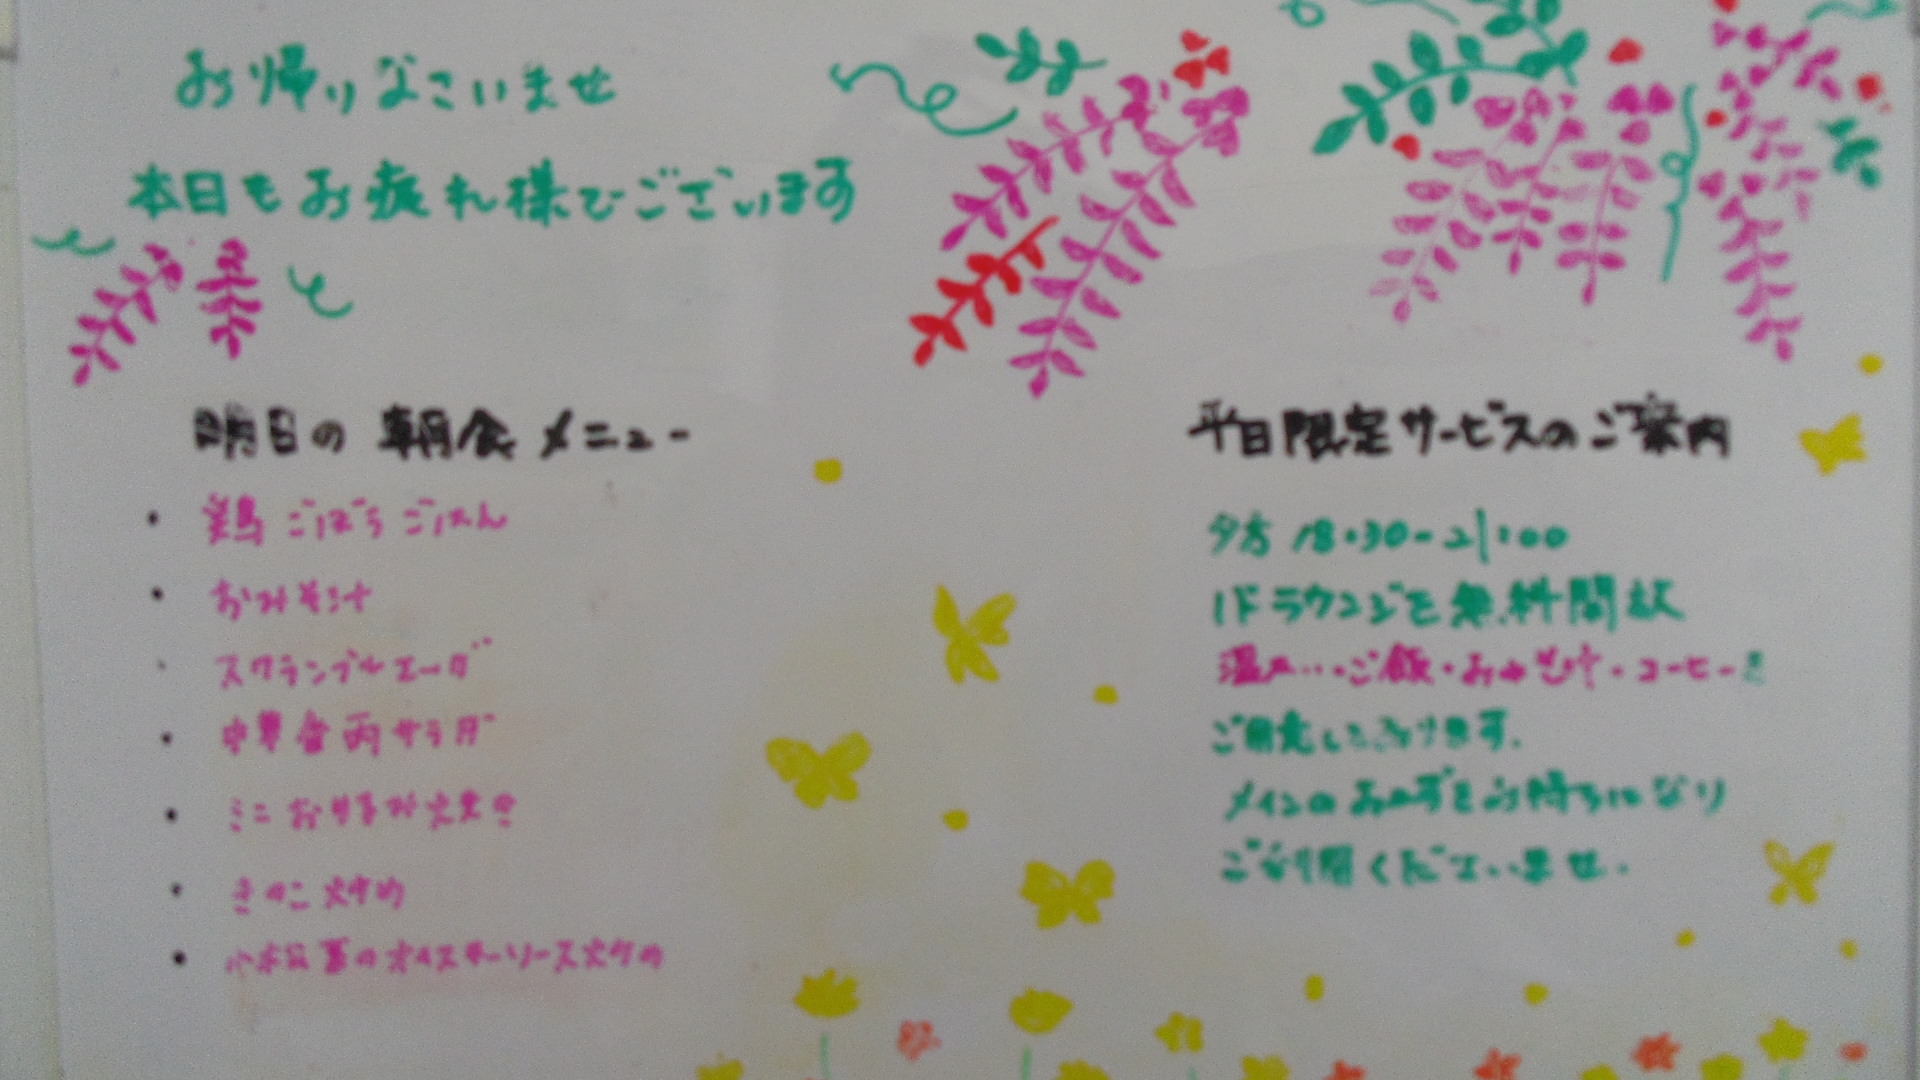 お帰りなさいませ
本日もお疲れ様でございます
明日の朝食メニュー
・鶏ごぼうごはん
・おみそ汁
・スクランブルエッグ
・中華春雨サラダ
・ミニお好み焼き
・きのこ炒め
・小松菜のオイスターソース炒め
平日限定サービスのご案内
夕方 18:30-21:00
1Fラウンジを無料開放
ご飯・おみそ汁・コーヒーを
ご用意しております。
メインのおかずをお持ちになり
ご利用くださいませ。